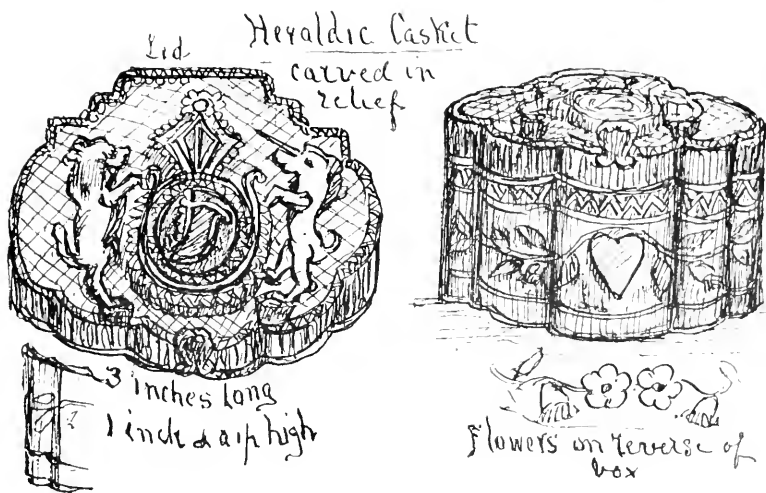 Heraldic Casket
Lid
carved in
relief
3 inches long
1 inch & high
Flowers on reverse of
box